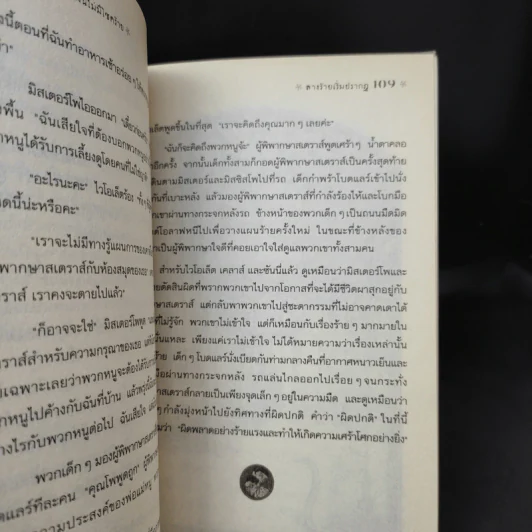 งนี้ตอนที่ฉันทำอาหารเช้าอร่อย
มิสเตอร์โพไอออกมา
"ฉันเสียใจที่ต้องบอกพวก
หนูได้รับการเลี้ยงดูโดยคนที่
"อะไรนะคะ" ไวโอเล็ตร้อง
ดนี้น่ะหรือคะ"
"เราจะไม่มีทางรู้แผนการของ
พิพากษาสเตราส์กับห้องสมุดของเธอ
ราส์ เราคงจะตายไปแล้ว"
"ก็อาจจะใช่" มิสเตอร์โพพูด
ราส์สำหรับความกรุณาของเธอ
เฉพาะเลยว่าพวกหนูจะต้องได้รับ
หนูไปค้างกับฉันที่บ้าน แล้วพรุ่งนี้
ย่างไรกับพวกหนูต่อไป ฉันเสียใจ
พวกเด็ก ๆ มองผู้พิพากษา
ดแลร์ทีละคน "คุณโพพูดถูก"
ความประสงค์ของพ่อแม่หนู
ลางร้ายเริ่มปรากฏ 109
เล็ตพูดขึ้นในที่สุด "เราจะคิดถึงคุณมาก ๆ เลยค่ะ"
"ฉันก็จะคิดถึงพวกหนูจ้ะ" ผู้พิพากษาสเตราส์พูดเศร้าๆ น้ำตาคลอ
อีกครั้ง จากนั้นเด็กทั้งสามก็กอดผู้พิพากษาสเตราส์เป็นครั้งสุดท้าย
เดินตามมิสเตอร์และมิสซิสโพไปที่รถ เด็กกำพร้าโบดแลร์เข้าไปนั่ง
กันที่เบาะหลัง แล้วมองผู้พิพากษาสเตราส์ที่กำลังร้องไห้และโบกมือ
เขาผ่านทางกระจกหลังรถ ข้างหน้าของพวกเด็ก ๆ เป็นถนนมืดมิด
ต์โอลาฟหนีไปเพื่อวางแผนร้ายครั้งใหม่ ในขณะที่ข้างหลังของ
าเป็นผู้พิพากษาใจดีที่คอยเอาใจใส่ดูแลพวกเขาทั้งสามคน
สำหรับไวโอเล็ต เคลาส์ และซันนี่แล้ว ดูเหมือนว่ามิสเตอร์โพและ
ยตัดสินผิดที่พรากพวกเขาไปจากโอกาสที่จะได้มีชีวิตผาสุกอยู่กับ
ษาสเตราส์ แต่กลับพาพวกเขาไปสู่ชะตากรรมที่ไม่อาจคาดเดาได้
ที่ไม่รู้จัก พวกเขาไม่เข้าใจ แต่ก็เหมือนกับเรื่องร้าย ๆ มากมายใน
นแหละ เพียงแค่เราไม่เข้าใจ ไม่ได้หมายความว่าเรื่องเหล่านั้น
้าย เด็ก ๆ โบดแลร์นั่งเบียดกันท่ามกลางคืนที่อากาศหนาวเย็นและ
อผ่านทางกระจกหลัง รถแล่นไกลออกไปเรื่อย ๆ จนกระทั่ง
าสเตราส์กลายเป็นเพียงจุดเล็กๆ อยู่ในความมืด และดูเหมือนว่า
ๆ กำลังมุ่งหน้าไปยังทิศทางที่ผิดปกติ คำว่า "ผิดปกติ" ในที่นี้
ามว่า "ผิดพลาดอย่างร้ายแรงและทำให้เกิดความเศร้าโศกอย่างยิ่ง"